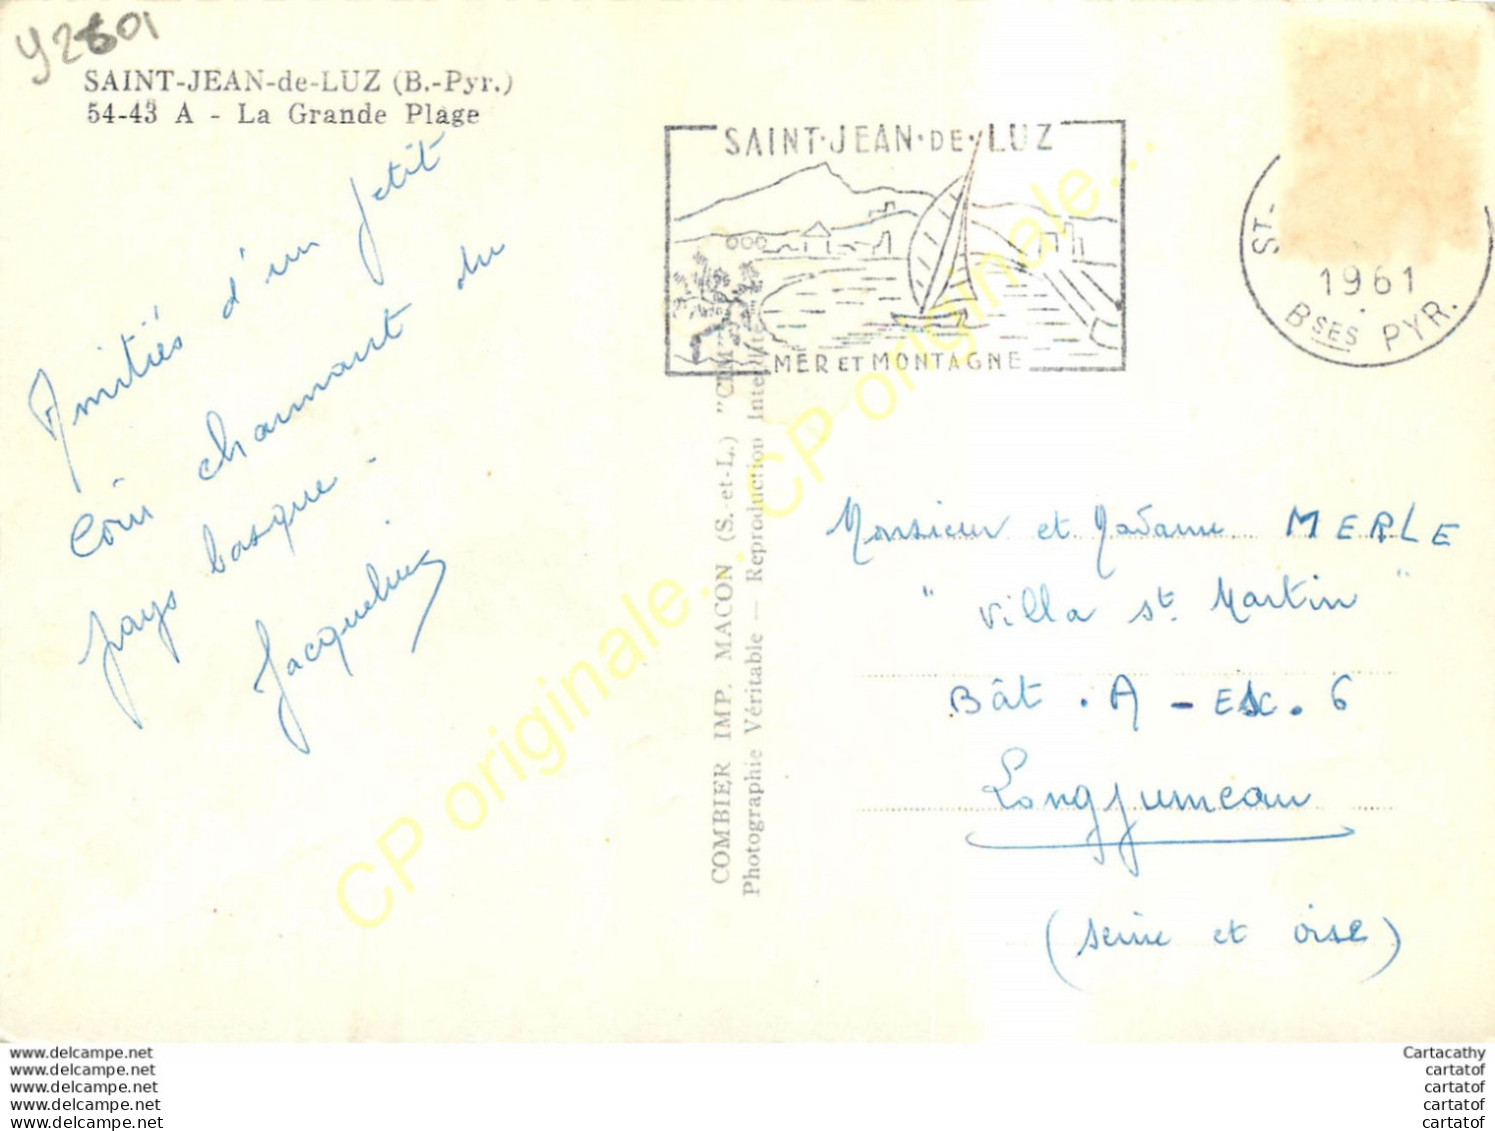 y2801
SAINT-JEAN-de-LUZ (B.-Pyr.)
54-43 A - La Grande Plage
Amitiés d'un petit
coin charmant du
pays basque.
Jacqueline
SAINT·JEAN·DE·LUZ
MER ET MONTAGNE
ST-
1961
BSES PYR.
COMBIER IMP. MACON (S.-et-L.) "CIM"
Photographie Véritable — Reproduction Interdite
Monsieur et Madame MERLE
"Villa St Martin"
Bât. A - ESC. 6
Longjumeau
(Seine et Oise)
CP originale... CP originale...
www.delcampe.net
www.delcampe.net
www.delcampe.net
www.delcampe.net
www.delcampe.net
Cartacathy
cartatof
cartatof
cartatof
cartatof